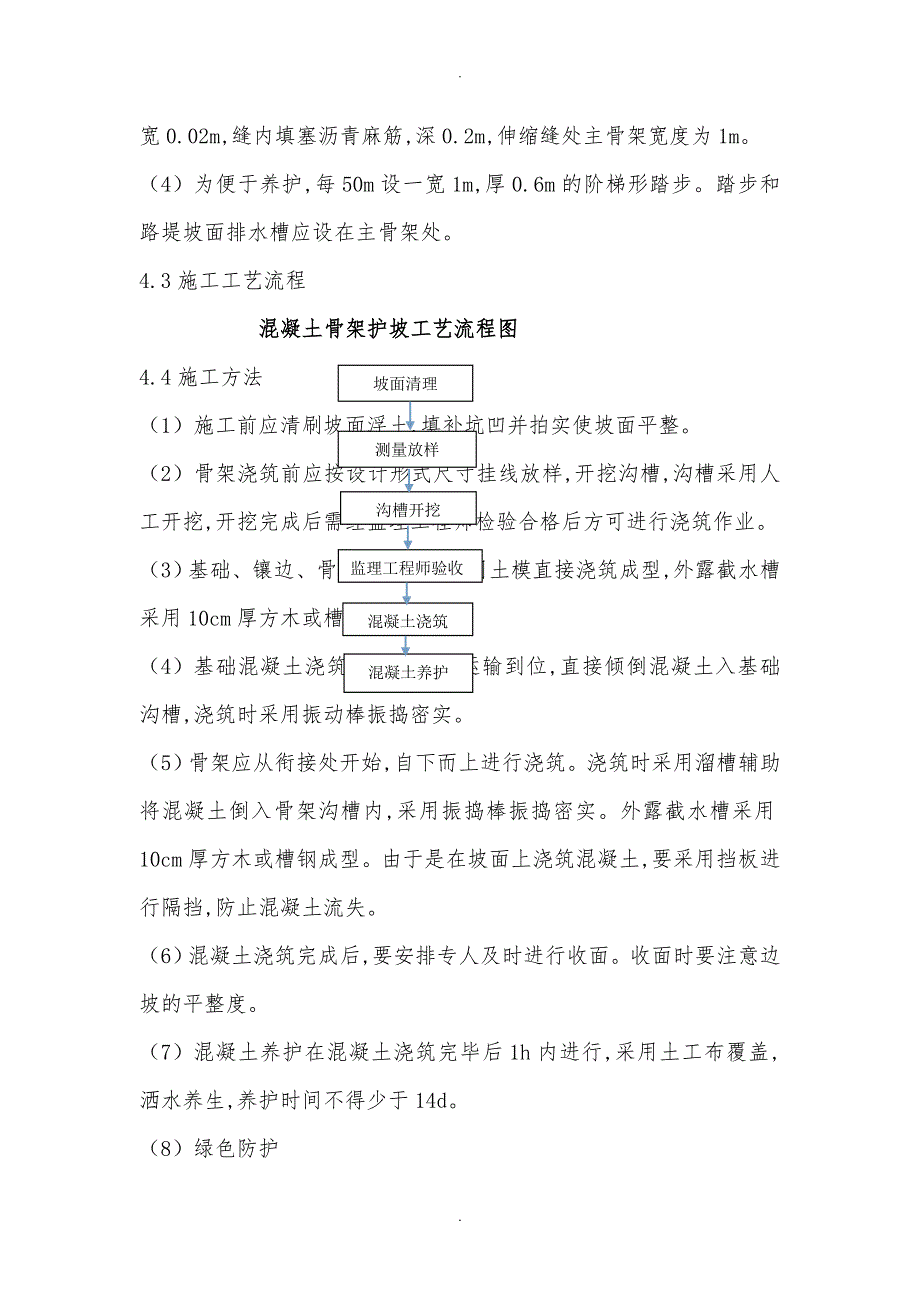 宽0.02m,缝内填塞沥青麻筋,深0.2m,伸缩缝处主骨架宽度为1m。
（4）为便于养护,每50m设一宽1m,厚0.6m的阶梯形踏步。踏步和
路堤坡面排水槽应设在主骨架处。
4.3施工工艺流程
混凝土骨架护坡工艺流程图
4.4施工方法
坡面清理
（1）施工前应清刷坡面浮土,填补坑凹并拍实使坡面平整。
测量放样
（2）骨架浇筑前应按设计形式尺寸挂线放样,开挖沟槽,沟槽采用人
沟槽开挖
工开挖,开挖完成后需经监理工程师检验合格后方可进行浇筑作业。
监理工程师验收
（3）基础、镶边、骨土模直接浇筑成型,外露截水槽
采用10cm厚方木或槽
混凝土浇筑
（4）基础混凝土浇筑运输到位,直接倾倒混凝土入基础
混凝土养护
沟槽,浇筑时采用振动棒振捣密实。
（5）骨架应从衔接处开始,自下而上进行浇筑。浇筑时采用溜槽辅助
将混凝土倒入骨架沟槽内,采用振捣棒振捣密实。外露截水槽采用
10cm厚方木或槽钢成型。由于是在坡面上浇筑混凝土,要采用挡板进
行隔挡,防止混凝土流失。
（6）混凝土浇筑完成后,要安排专人及时进行收面。收面时要注意边
坡的平整度。
（7）混凝土养护在混凝土浇筑完毕后1h内进行,采用土工布覆盖,
洒水养生,养护时间不得少于14d。
（8）绿色防护